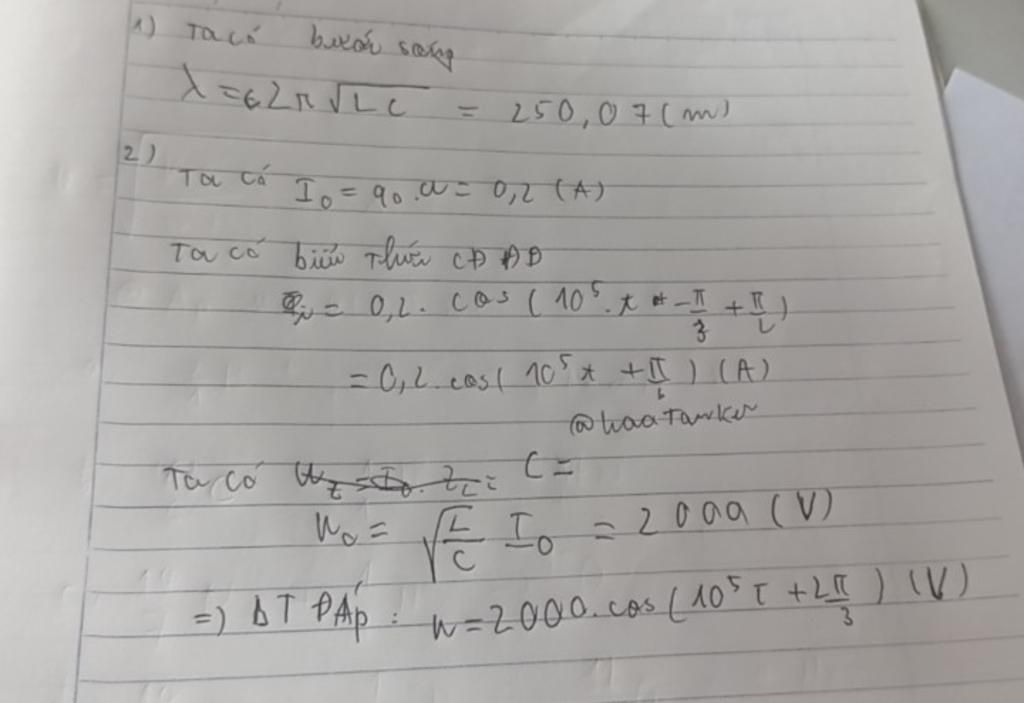 1) Ta có bước sóng
λ = c2π√LC = 250,07 (m)
2)
Ta có I₀ = q₀.ω = 0,2 (A)
Ta có biểu thức CĐ DĐ
i = 0,2. cos ( 10⁵. t - π/3 + π/2 )
= 0,2. cos( 10⁵ t + π/6 ) (A)
Ta có C =
U₀ = √(L/C) I₀ = 2000 (V)
=) BT ĐÁp : u = 2000. cos ( 10⁵ t + 2π/3 ) (V)